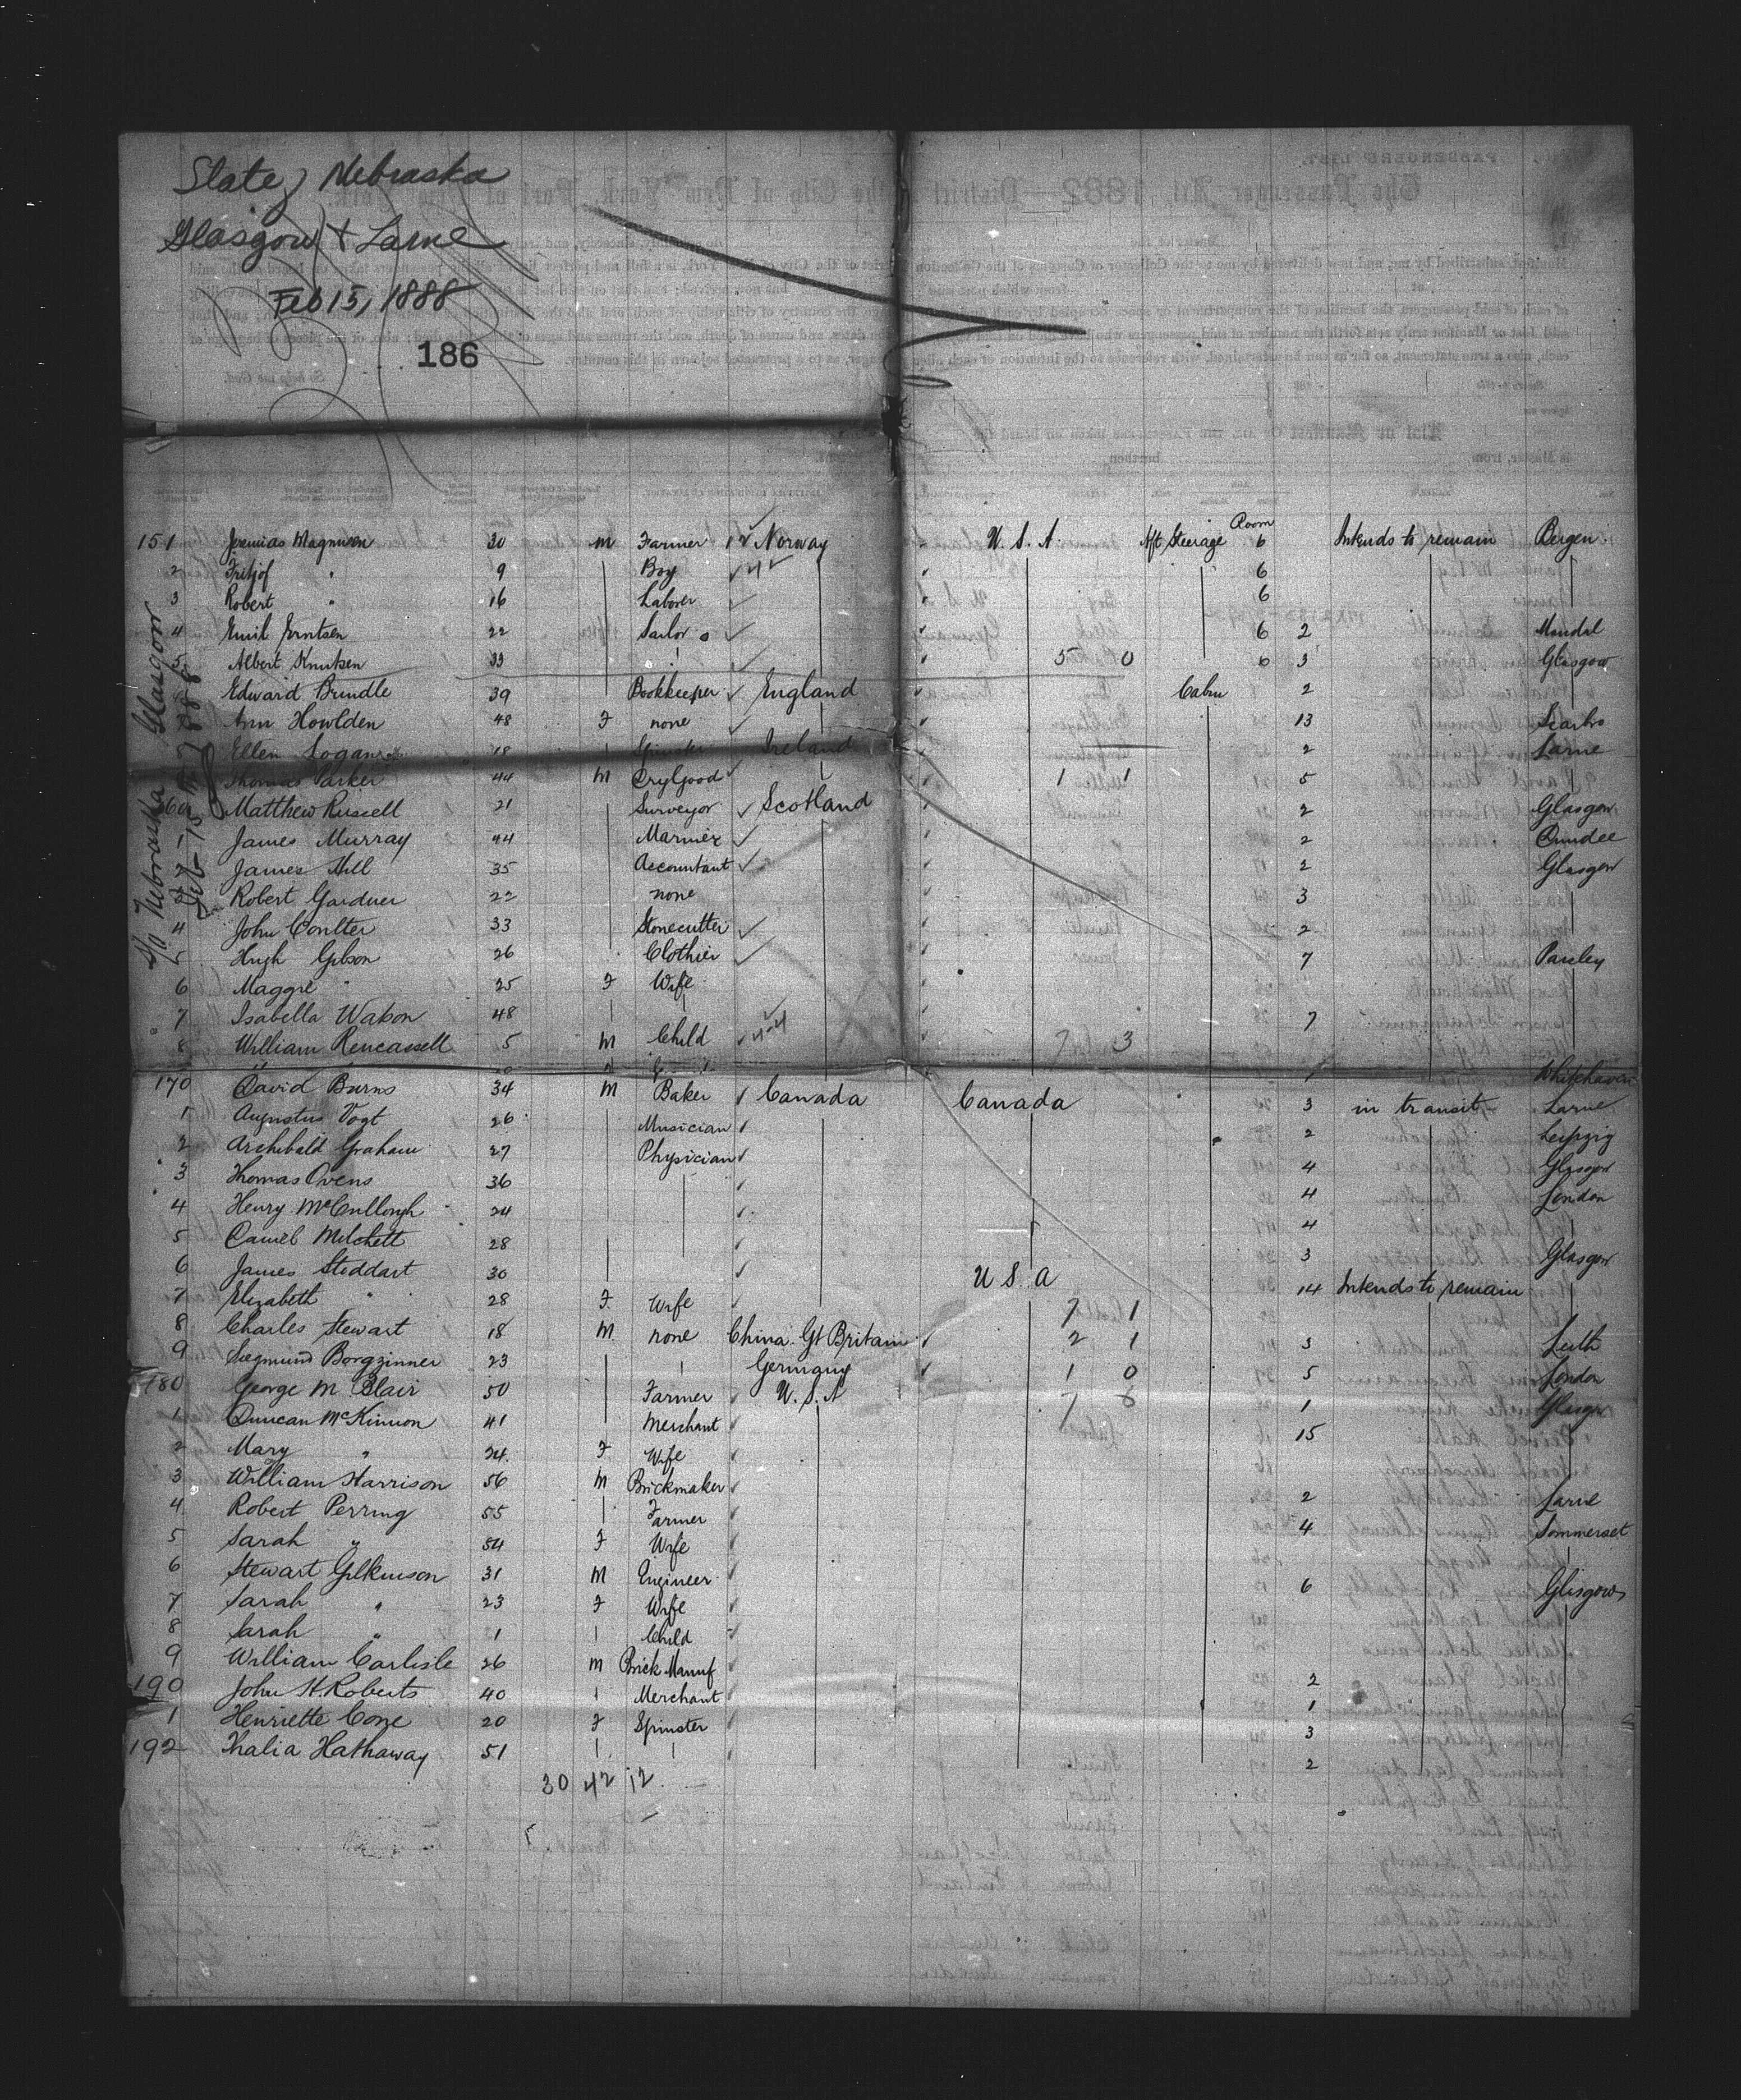 State of Nebraska
Glasgow & Larne
Feb 15, 1888
186
S/S Nebraska Glasgow
Feb 15 1888
Room
151 Jeremias Magnusen 30 M Farmer Norway U. S. A. Aft Steerage 6 Intends to remain Bergen
2 Fritjof " 9 Boy 6
3 Robert " 16 Laborer 6
4 Emil Erntsen 22 Sailor 6 2 Mandal
5 Albert Knutsen 33 5 0 6 3 Glasgow
Edward Brindle 39 Bookkeeper England Cabin 2
Ann Howlden 48 F none 13 Scarbro
Ellen Logan 18 Spinster Ireland 2 Larne
Thomas Parker 44 M DryGood 1 1 5
160 Matthew Russell 21 Surveyor Scotland 2 Glasgow
1 James Murray 44 Mariner 2 Dundee
James Hill 35 Accountant 2 Glasgow
Robert Gardner 22 none 3
4 John Coulter 33 Stonecutter 2
5 Hugh Gibson 26 Clothier 7 Paisley
6 Maggie " 25 F Wife
7 Isabella Watson 48 7
8 William Rencassell 5 M Child 7 3
Whitehaven
170 David Burns 34 M Baker Canada Canada 3 in transit Larne
1 Augustus Vogt 26 Musician 2 Leipzig
2 Archibald Graham 27 Physician 4 Glasgow
3 Thomas Ovens 36 4 London
4 Henry McCullough 24 4
5 Daniel Mitchett 28 3 Glasgow
6 James Stoddart 30 U S A 14 Intends to remain
7 Elizabeth " 28 F Wife 7 1
8 Charles Stewart 18 M none China Gt Britain 2 1 3 Leith
9 Siegmund Borgzinner 23 Germany 1 0 5 London
180 George M Blair 50 Farmer U. S. A 1 Glasgow
1 Duncan McKinnon 41 Merchant 15
2 Mary " 24 F Wife
3 William Harrison 56 M Brickmaker 2 Larne
4 Robert Perring 55 Farmer 4 Sommerset
5 Sarah " 54 F Wife
6 Stewart Gilkinson 31 M Engineer 6 Glasgow
7 Sarah " 23 F Wife
8 Sarah " 1 Child
9 William Carlisle 26 M Brick Manuf 2
190 John H. Roberts 40 Merchant 1
1 Henriette Cone 20 F Spinster 3
192 Thalia Hathaway 51 2
30 42 12